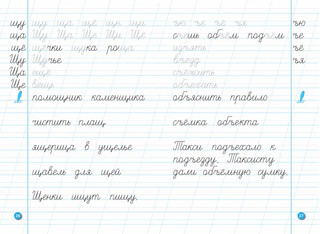 щу щу ща щё щи щи
ща Щу Ща Ще Щи Ще
щё щёчки щука роща
Щу Щучье
Ща ещё
Ще вещь
помощник каменщика
чистить плащ
ящерица в ущелье
щавель для щей
Щенки ищут пищу.
26
ъю ъе ъё ъя ъю
съешь объём подъём ъе
изъять ъё
въезд ъя
объехать
объяснить правило
съёмка объекта
Такси подъехало к
подъезду. Таксисту
дали объёмную сумку.
27